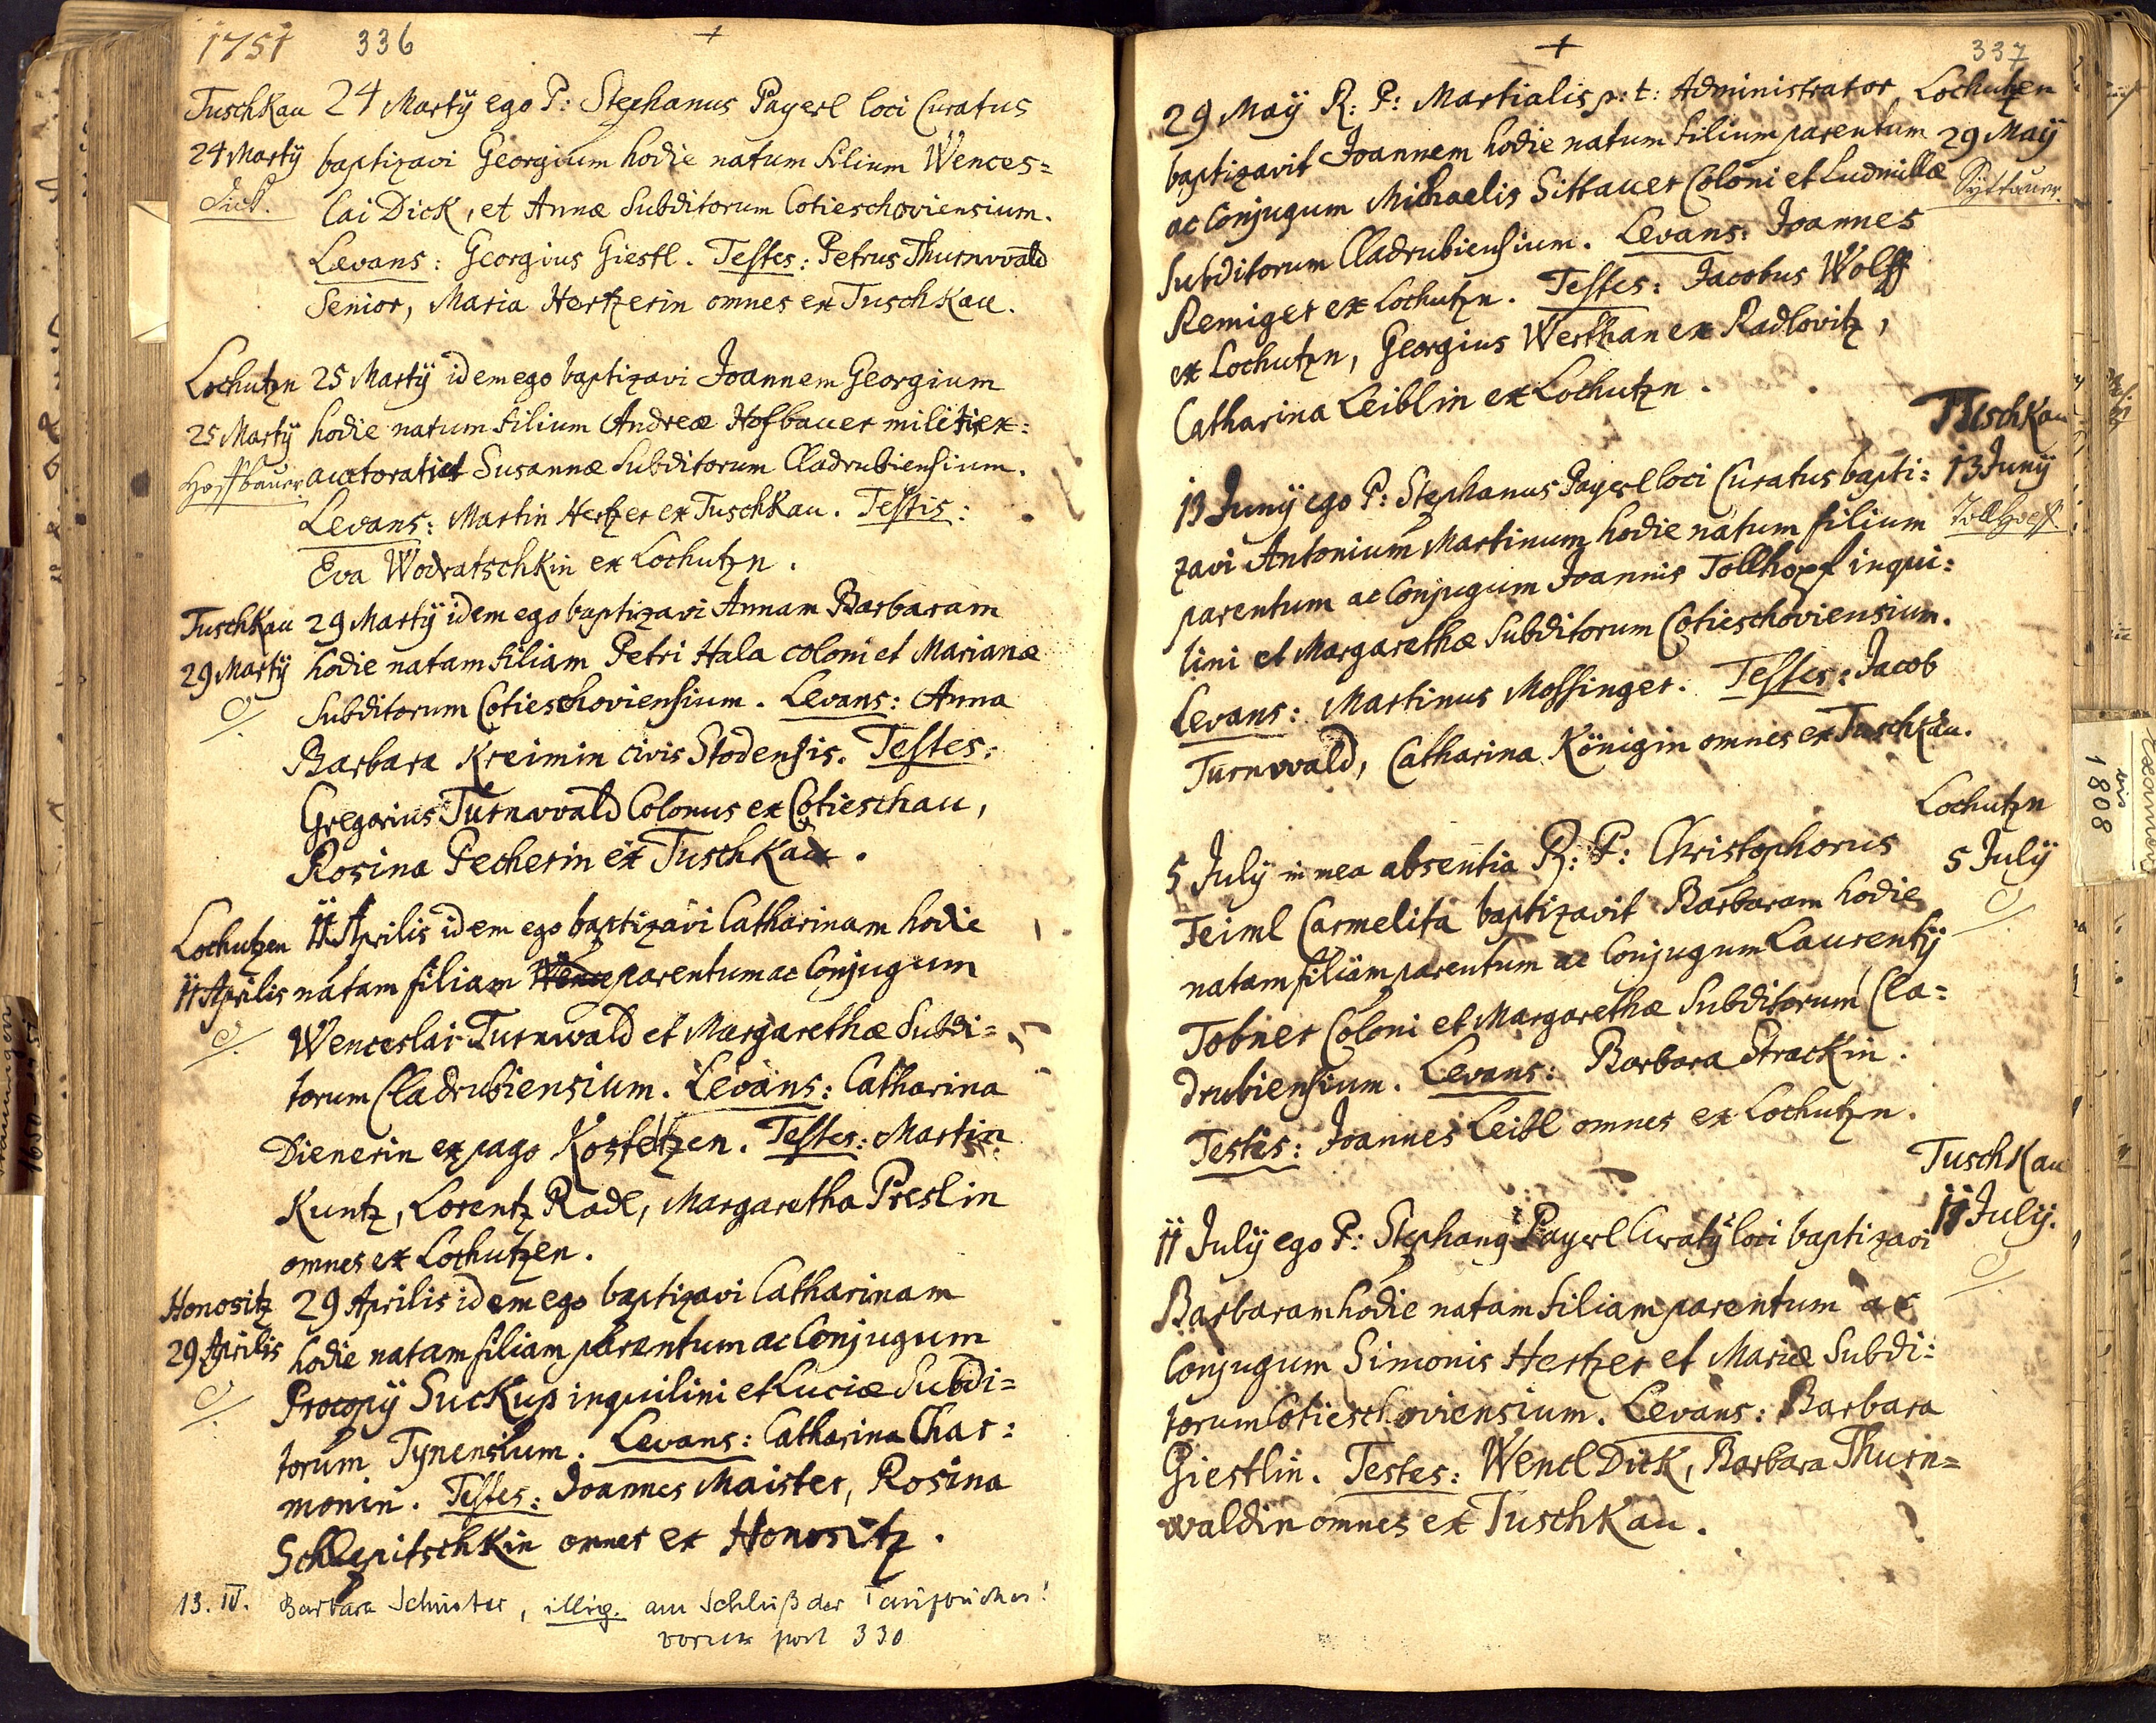 1751 336
Tuschkau 24 Martÿ ego P: Stephanus Payerl loci Curatus
24 Martÿ baptizavi Georgium hodie natum filium Wences=
Dick. lai Dick, et Annæ Subditorum Cotieschoviensium.
Levans: Georgius Giestl. Testes: Petrus Thurnwald
Senior, Maria Hertzerin omnes ex Tuschkau.
Lochutzn 25 Martÿ idem ego baptizavi Joannem Georgium
25 Martÿ hodie natum filium Andreæ Hofbauer
Hoffbauer Susannæ Subditorum Cladrubiensium.
Levans: Martin Hertzer ex Tuschkau. Testis:
Eva Wodratschkin ex Lochutzn.
Tuschkau 29 Martÿ idem ego baptizavi Annam Barbaram
29 Martÿ hodie natam filiam Petri Hala coloni et Marianæ
Subditorum Cotieschoviensium. Levans: Anna
Barbara Kreimin civis Stodensis. Testes:
Gregorius Turnwald Colonus ex Cotieschau,
Rosina Pecherin ex Tuschkau.
Lochutzen 11 Aprilis idem ego baptizavi Catharinam hodie
11 Aprilis natam filiam parentum ac Conjugum
Wenceslai Turnwald et Margarethæ Subdi=
torum Cladrubiensium. Levans: Catharina
Dienerin ex pago Kostetzen. Testes: Martin
Kuntz, Lorentz Radl, Margaretha Preslin
omnes ex Lochutzen.
Honositz 29 Aprilis idem ego baptizavi Catharinam
29 Aprilis hodie natam filiam parentum ac Conjugum
Procopÿ Suckup inquilini et Luciæ Subdi=
torum Tynensium. Levans: Catharina Char:
monin. Testes: Joannes Maister, Rosina
Schlepitschkin omnes ex Honositz.
13. IV. Barbara Schuster, illeg. am Schluß der Taufbücher!
330
337
29 Maÿ R: P: Martialis p: t: Administrator Lochutzen
baptizavit Joannem hodie natum filium parentum 29 Maÿ
ac Conjugum Michaelis Sittauer Coloni et Ludmillæ Syttauer.
Subditorum Cladrubiensium. Levans: Joannes
Remiger ex Lochutzn. Testes: Jacobus Wolff
ex Lochutzn, Georgius Werthan ex Radlovitz,
Catharina Leiblin ex Lochutzn.
Tuschkau
13 Junÿ ego P: Stephanus Payerl loci Curatus bapti: 13 Junÿ
zavi Antonium Martinum hodie natum filium Tollhopf
parentum ac Conjugum Joannis Tollhopf inqui:
lini et Margarethæ Subditorum Cotieschoviensium.
Levans: Martinus Mossinger. Testes: Jacob
Turnwald, Catharina Königin omnes ex Tuschkau.
Lochutzn
5 Julÿ in mea absentia R: P: Christophorus 5 Julÿ
Teiml Carmelita baptizavit Barbaram hodie
natam filiam parentum ac Conjugum Laurentÿ
Tobner Coloni et Margarethæ Subditorum Cla=
drubiensium. Levans: Barbara Strackin.
Testes: Joannes Leibl omnes ex Lochutzn.
Tuschkau
11 Julÿ ego P: Stephanq Payerl Curatq loci baptizavi 11 Julÿ.
Barbaram hodie natam filiam parentum ac
Conjugum Simonis Hertzer et Mariæ Subdi:
torum Cotieschoviensium. Levans: Barbara
Giestlin. Testes: Wencl Dick, Barbara Thurn=
waldin omnes ex Tuschkau.
bis
1808